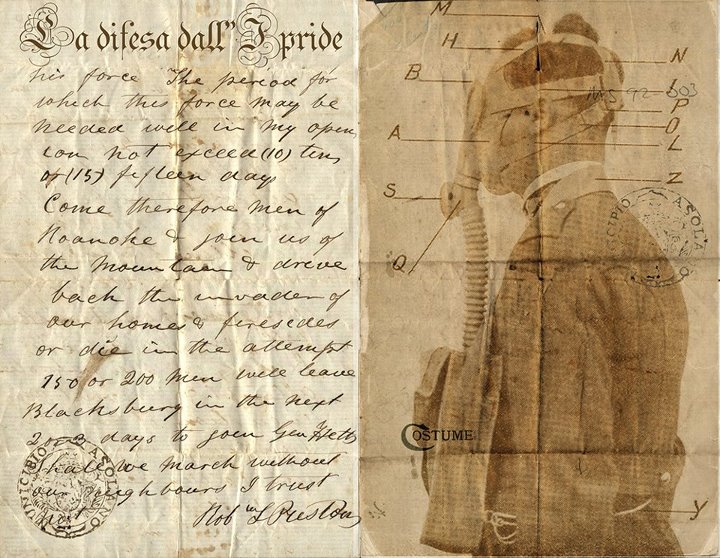 La difesa dall" Ipride
his force The period for
which this force may be
needed will in my opin
ion not exceed (10) ten
or (15) fifteen days
Come therefore men of
Roanoke & join us of
the Mountain & drive
back the invader of
our homes & firesides
or die in the attempt
150 or 200 men will leave
Blacksburg in the next
2 or 3 days to join Genl Heth
shall we march without
our neighbours I trust
not
Robt L Preston
MUNICIPIO ASOLANO
M
H
B
A
S
Q
N
I
MS 92-003
P
O
L
Z
MUNICIPIO ASOLANO
COSTUME
Y